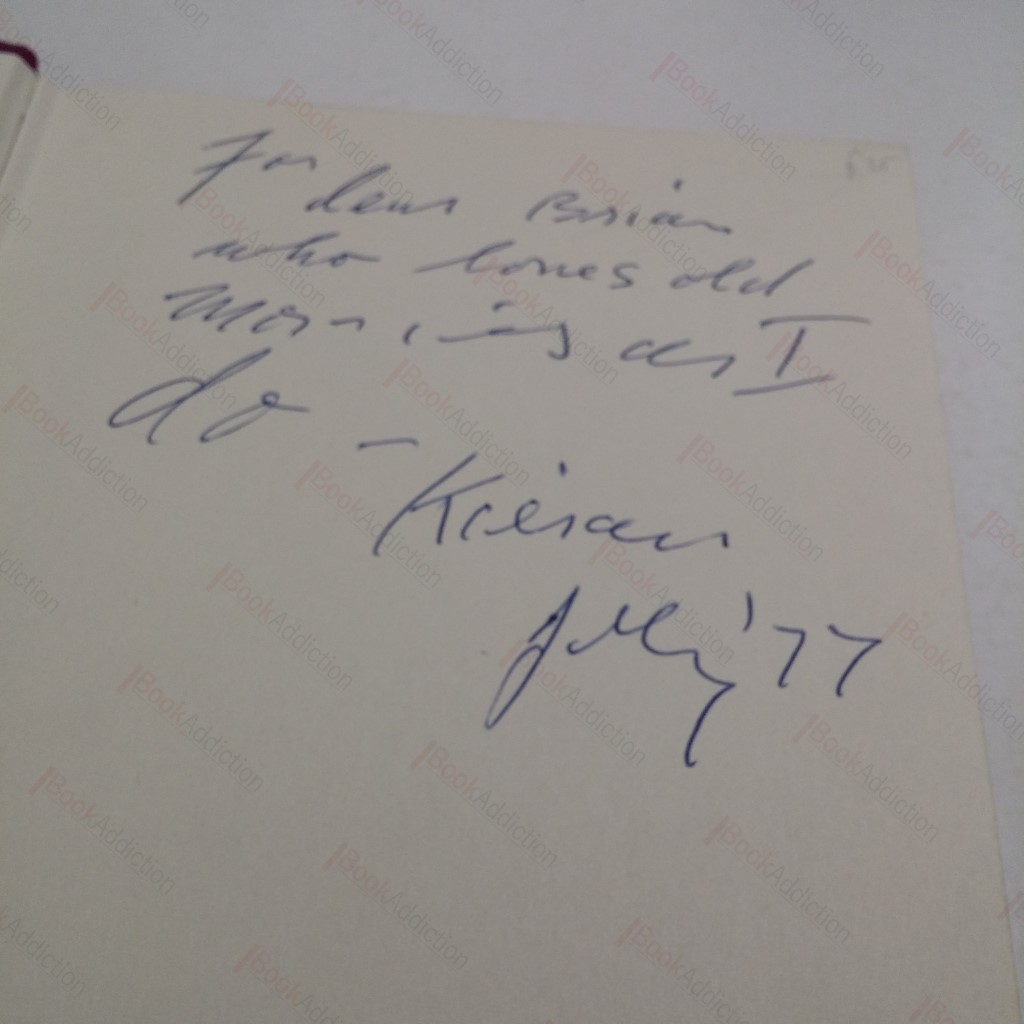 For dear Brian
who loves old
as I
do – Kieran
July '77
BookAddiction